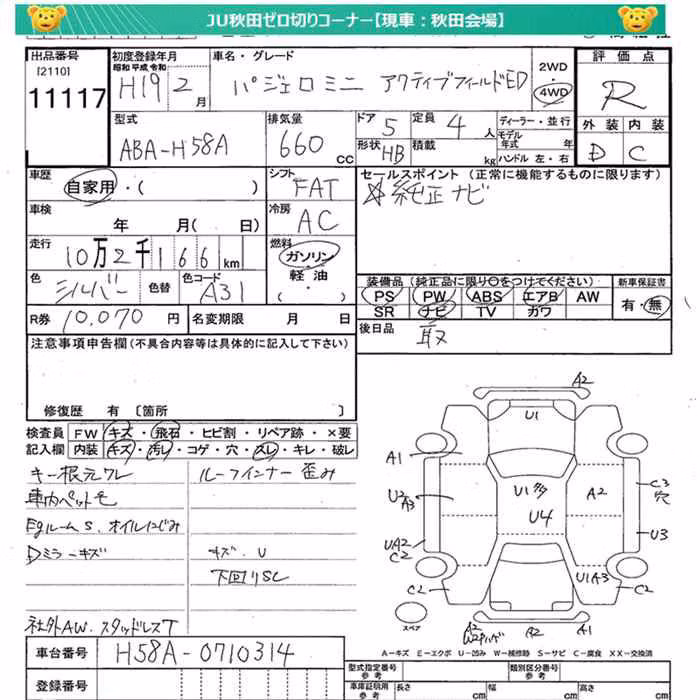 JU秋田ゼロ切りコーナー【現車：秋田会場】
出品番号
[2110]
11117
初度登録年月
昭和 平成 令和
H19 2月
車名・グレード
パジェロミニ アクティブフィールドED
2WD
・
4WD
評価点
R
外装 内装
D C
型式
ABA-H58A
排気量
660 CC
ドア 5
形状 HB
定員 4人
積載 kg
ディーラー・並行
モデル年式 年
ハンドル 左・右
車歴
自家用・( )
シフト
FAT
セールスポイント (正常に機能するものに限ります)
☆純正ナビ
車検
年 月( 日)
冷房
AC
走行
10万2千166km
燃料
ガソリン・軽油
( ・ )
色 シルバー 色替 色コード A31
装備品 (純正品に限り○をつけてください)
PS PW ABS エアB AW
SR ナビ TV カワ
新車保証書
有・無
R券 10,070円 名変期限 月 日
後日品 取
注意事項申告欄 (不具合内容等は具体的に記入して下さい)
修復歴 有 [箇所 ]
検査員記入欄
FW キズ・飛石・ヒビ割・リペア跡・×要
内装 キズ・汚レ・コゲ・穴・スレ・キレ・破レ
キー根元ワレ
車内ペット毛
Egルーム S、オイルにじみ
Dミラーキズ
社外AW.スタッドレスT
ルーフインナー歪み
キズ.U
下回りSC
A2
U1
A1
U2
A3
U1多
U4
A2
C3
穴
UA2
C2
U3
C2
U1A3
C2
スペア
A2
A2
A1
A-キズ E-エクボ U-凹み W-補修跡 S-サビ C-腐食 XX-交換済
車台番号 H58A-0710314
登録番号
型式指定番号
参考
類別区分番号
参考
車庫証明用
参考
長さ cm
幅 cm
高さ cm